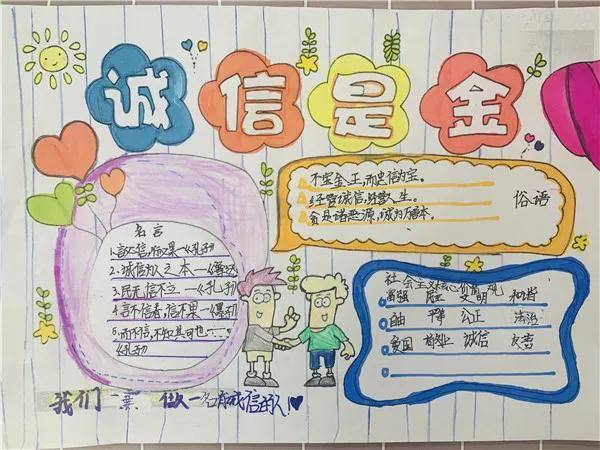 诚信是金
不宝金玉,而忠信为宝。
经营诚信,经营人生。
贪是诸恶源,诚为万善本。
俗语
名言
1.言必信,行必果—《孔子》
2.诚信为人之本—《鲁达》
3.民无信不立—《孔子》
4.言不信者,信不果—《墨子》
5.而不信,不知其可也…
《孔子》
社会主义核心价值观
富强 民主 文明 和谐
自由 平等 公正 法治
爱国 敬业 诚信 友善
我们 要 做一名有诚信的人!